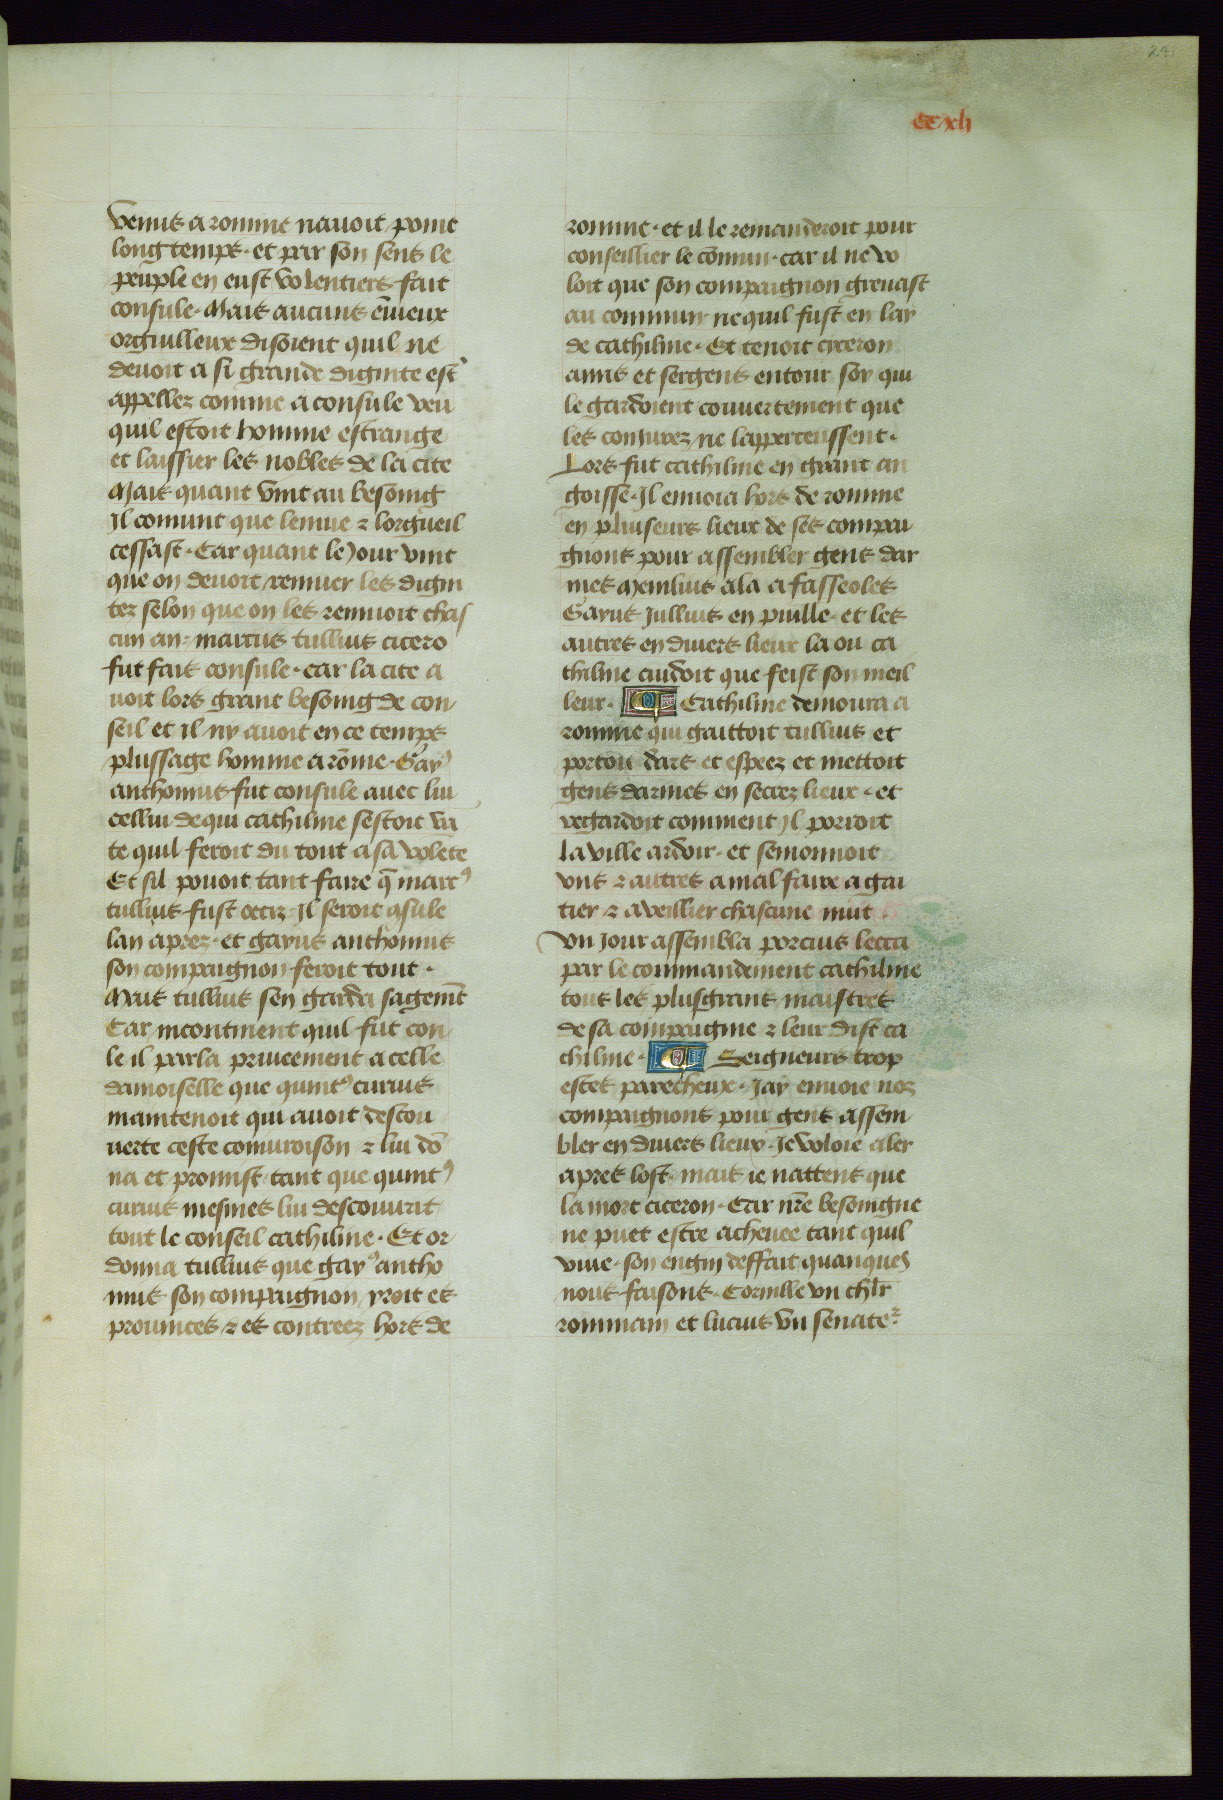 24
cc xli
venus a romme nauoit point
long temps · et par son sens le
peuple en eust volentiers fait
consule · Mais aucuns enuieux
orguilleux disoient quil ne
deuoit a si grande dignite est̾
appellez comme a consule veu
quil estoit homme estrange
et laissier les nobles de la cite
Mais quant vint au besoing
Il conuint que lenuie ⁊ lorgueil
cessast · Car quant le Jour vint
que on deuoit remuer les digni
tez selon que on les remuoit chas
cun an · marcus tullius cicero
fut fait consule · car la cite a
uoit lors grant besoing de con
seil et il ny auoit en ce temps
plussage homme a rōme · Gayꝰ
anthonius fut consule auec lui
cellui de qui cathiline sestoit va
te quil feroit du tout a sa volēte
Et sil pouoit tant faire q̄ marcꝰ
tullius fust occiz · Il seroit ꝯsule
lan aprez · et gayus anthonius
son compaignon feroit tout ·
Mais tullius sen garda sagemēt
Car incontinent quil fut con
le il parla priueement a celle
damoiselle que quintꝰ curius
maintenoit qui auoit descou
uerte ceste coniuroison ⁊ lui dō
na et promist tant que quintꝰ
curius mesmes lui descouurit
tout le conseil cathiline · Et or
donna tullius que gayꝰ antho
nius son compaignon yroit es
prouinces ⁊ es contreez hors de
romme · et il le remanderoit pour
conseillier le cōmun · car il ne vo
loit que son compaignon greuast
au commun ne quil fust en lay
de cathiline · Et tenoit cyceron
amis et sergens entour soy qui
le gardoient couuertement que
les coniurez ne lapperceussent ·
Lors fut cathiline en grant an
goisse · Il enuoia hors de romme
en pluiseurs lieux de ses compai
gnons pour assembler gens dar
mes Menlius ala a fasseoles
Gayus Jullius en puille · et les
autres en diuers lieux la ou ca
thiline cuidoit que feist son meil
leur · Cathiline demoura a
romme qui gaittoit tullius et
portoit dars et espeez et mettoit
gens darmes en secrez lieux · et
regardoit comment Il porroit
la ville ardoir · et semonnoit
vns ⁊ autres a mal faire a gai
tier ⁊ a veillier chascune nuit
Vn Jour assembla porcius lecca
par le commandement cathiline
tous les plusgrans maistres
de sa compaignie ⁊ leur dist ca
thiline · Seigneurs trop
estes parecheux · Jay enuoie noz
compaignons pour gens assem
bler en diuers lieux · Je voloie aler
apres lost · mais ie nattens que
la mort ciceron · Car nr̄e besoingne
ne puet estre acheuee tant quil
viue · son engin deffait quanques
nous faisons · Cornille vn chlr̄
rommain et lucius vn senate²